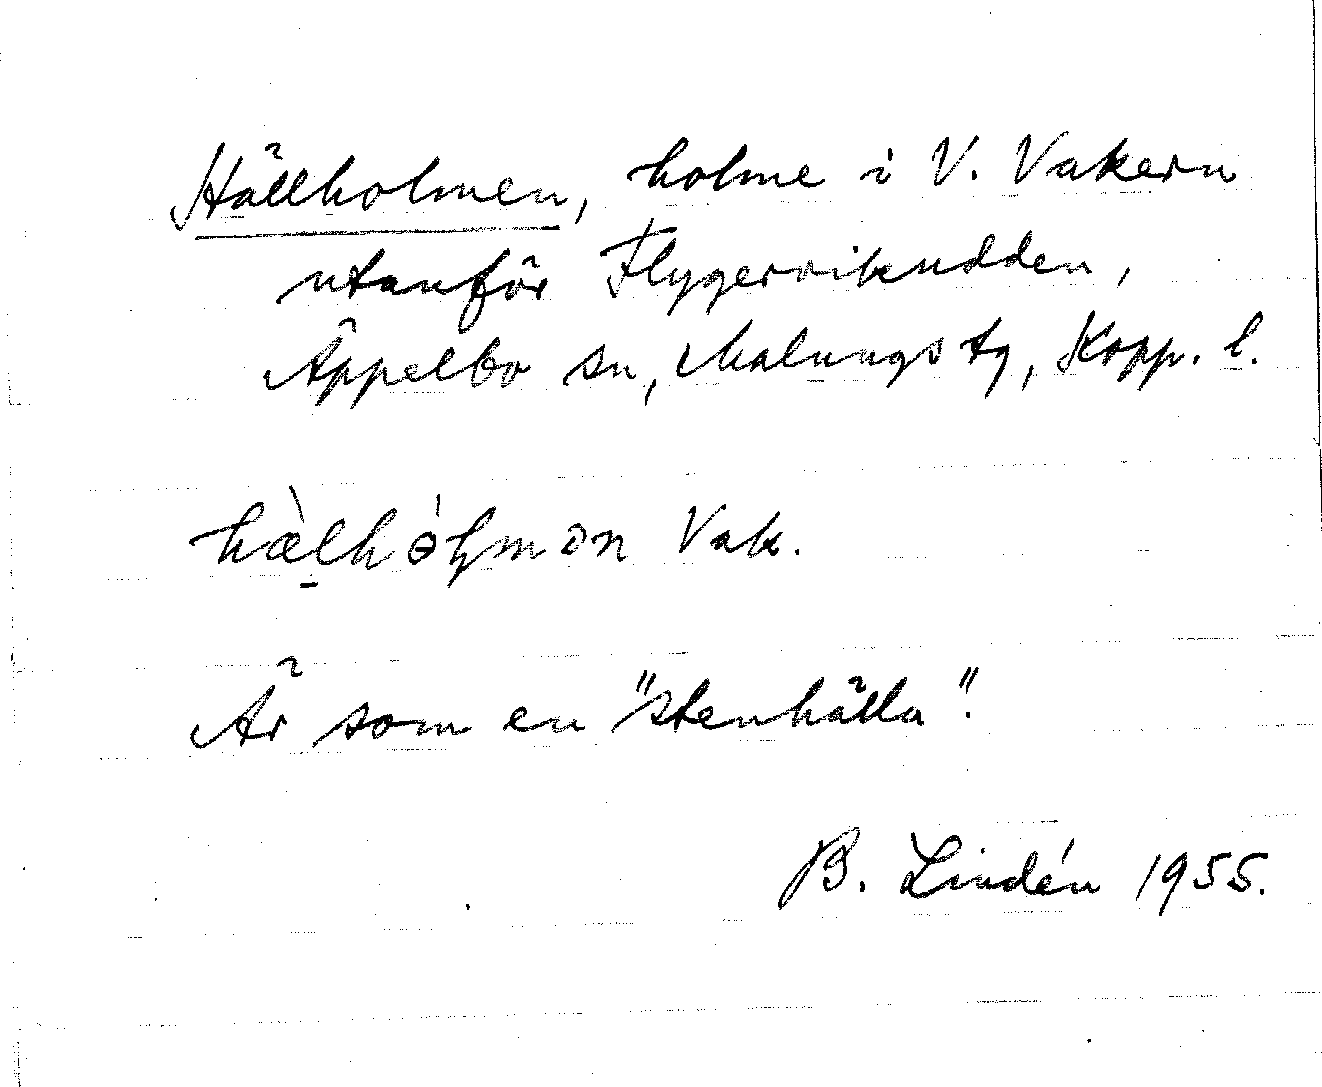 Hällholmen, holme i V. Vakern
utanför Flygervikudden,
Äppelbo sn, Malungs tg, Kopp. l.
hæ̀lhɵ́ɭmən Vak.
Är som en "stenhälla".
B. Lindén 1955.